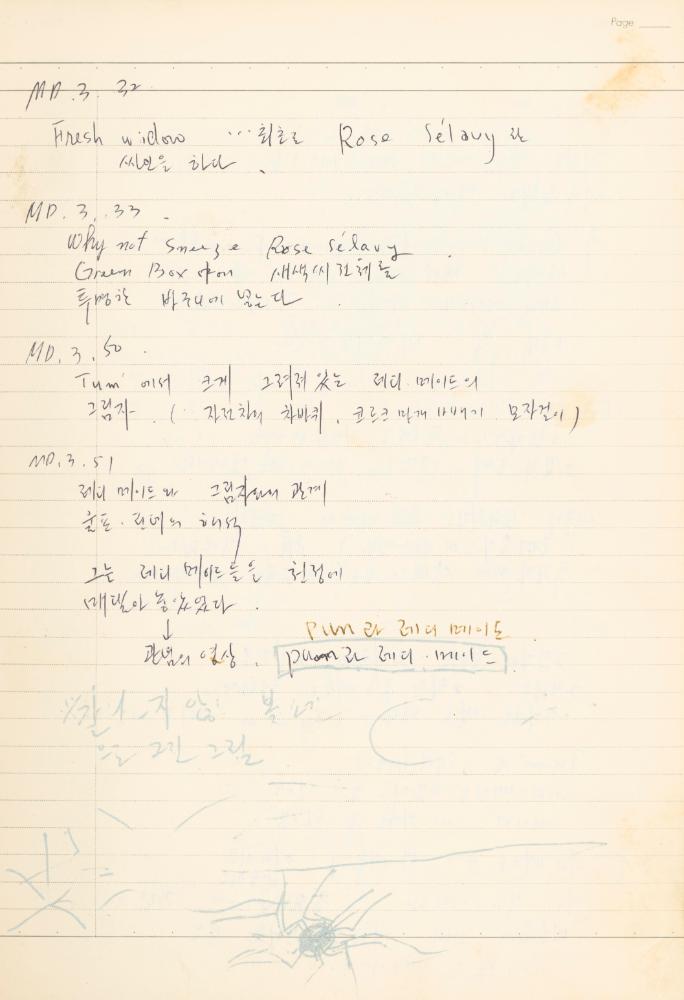 Page
MD. 3. 32
Fresh widow ... 최초로 Rose Sélavy 란
싸인을 하다.
MD. 3. 33.
Why not sneeze Rose Sélavy.
Green Box 새색씨 전체를
투명한 넣는다.
MD. 3. 50.
Tum' 에서 크게 그려져 있는 레디.메이드의
그림자. ( 자전차의 차바퀴, 코르크 마개 빼기. 모자걸이)
MD. 3. 51
레디 메이드와 그림자와의 관계
해석
그는 레디 메이드들을 천정에
매달아 놓았었다.
↓
pun 과 레디 메이드.
관념의 영상. pun 과 레디.메이드
그린 그림